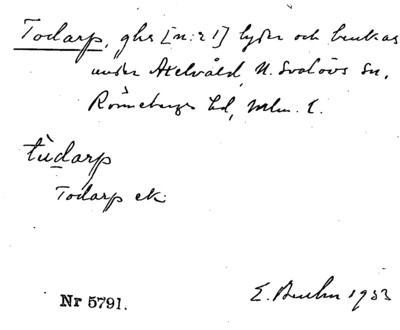 Todarp, ghs [n:r 1] lyder och brukas
under Axelvåld, N. Svalövs sn,
Rönnebergs hd, Mlm. l.
tùdarp
Todarp ek.
Nr 5791.
E. 1953